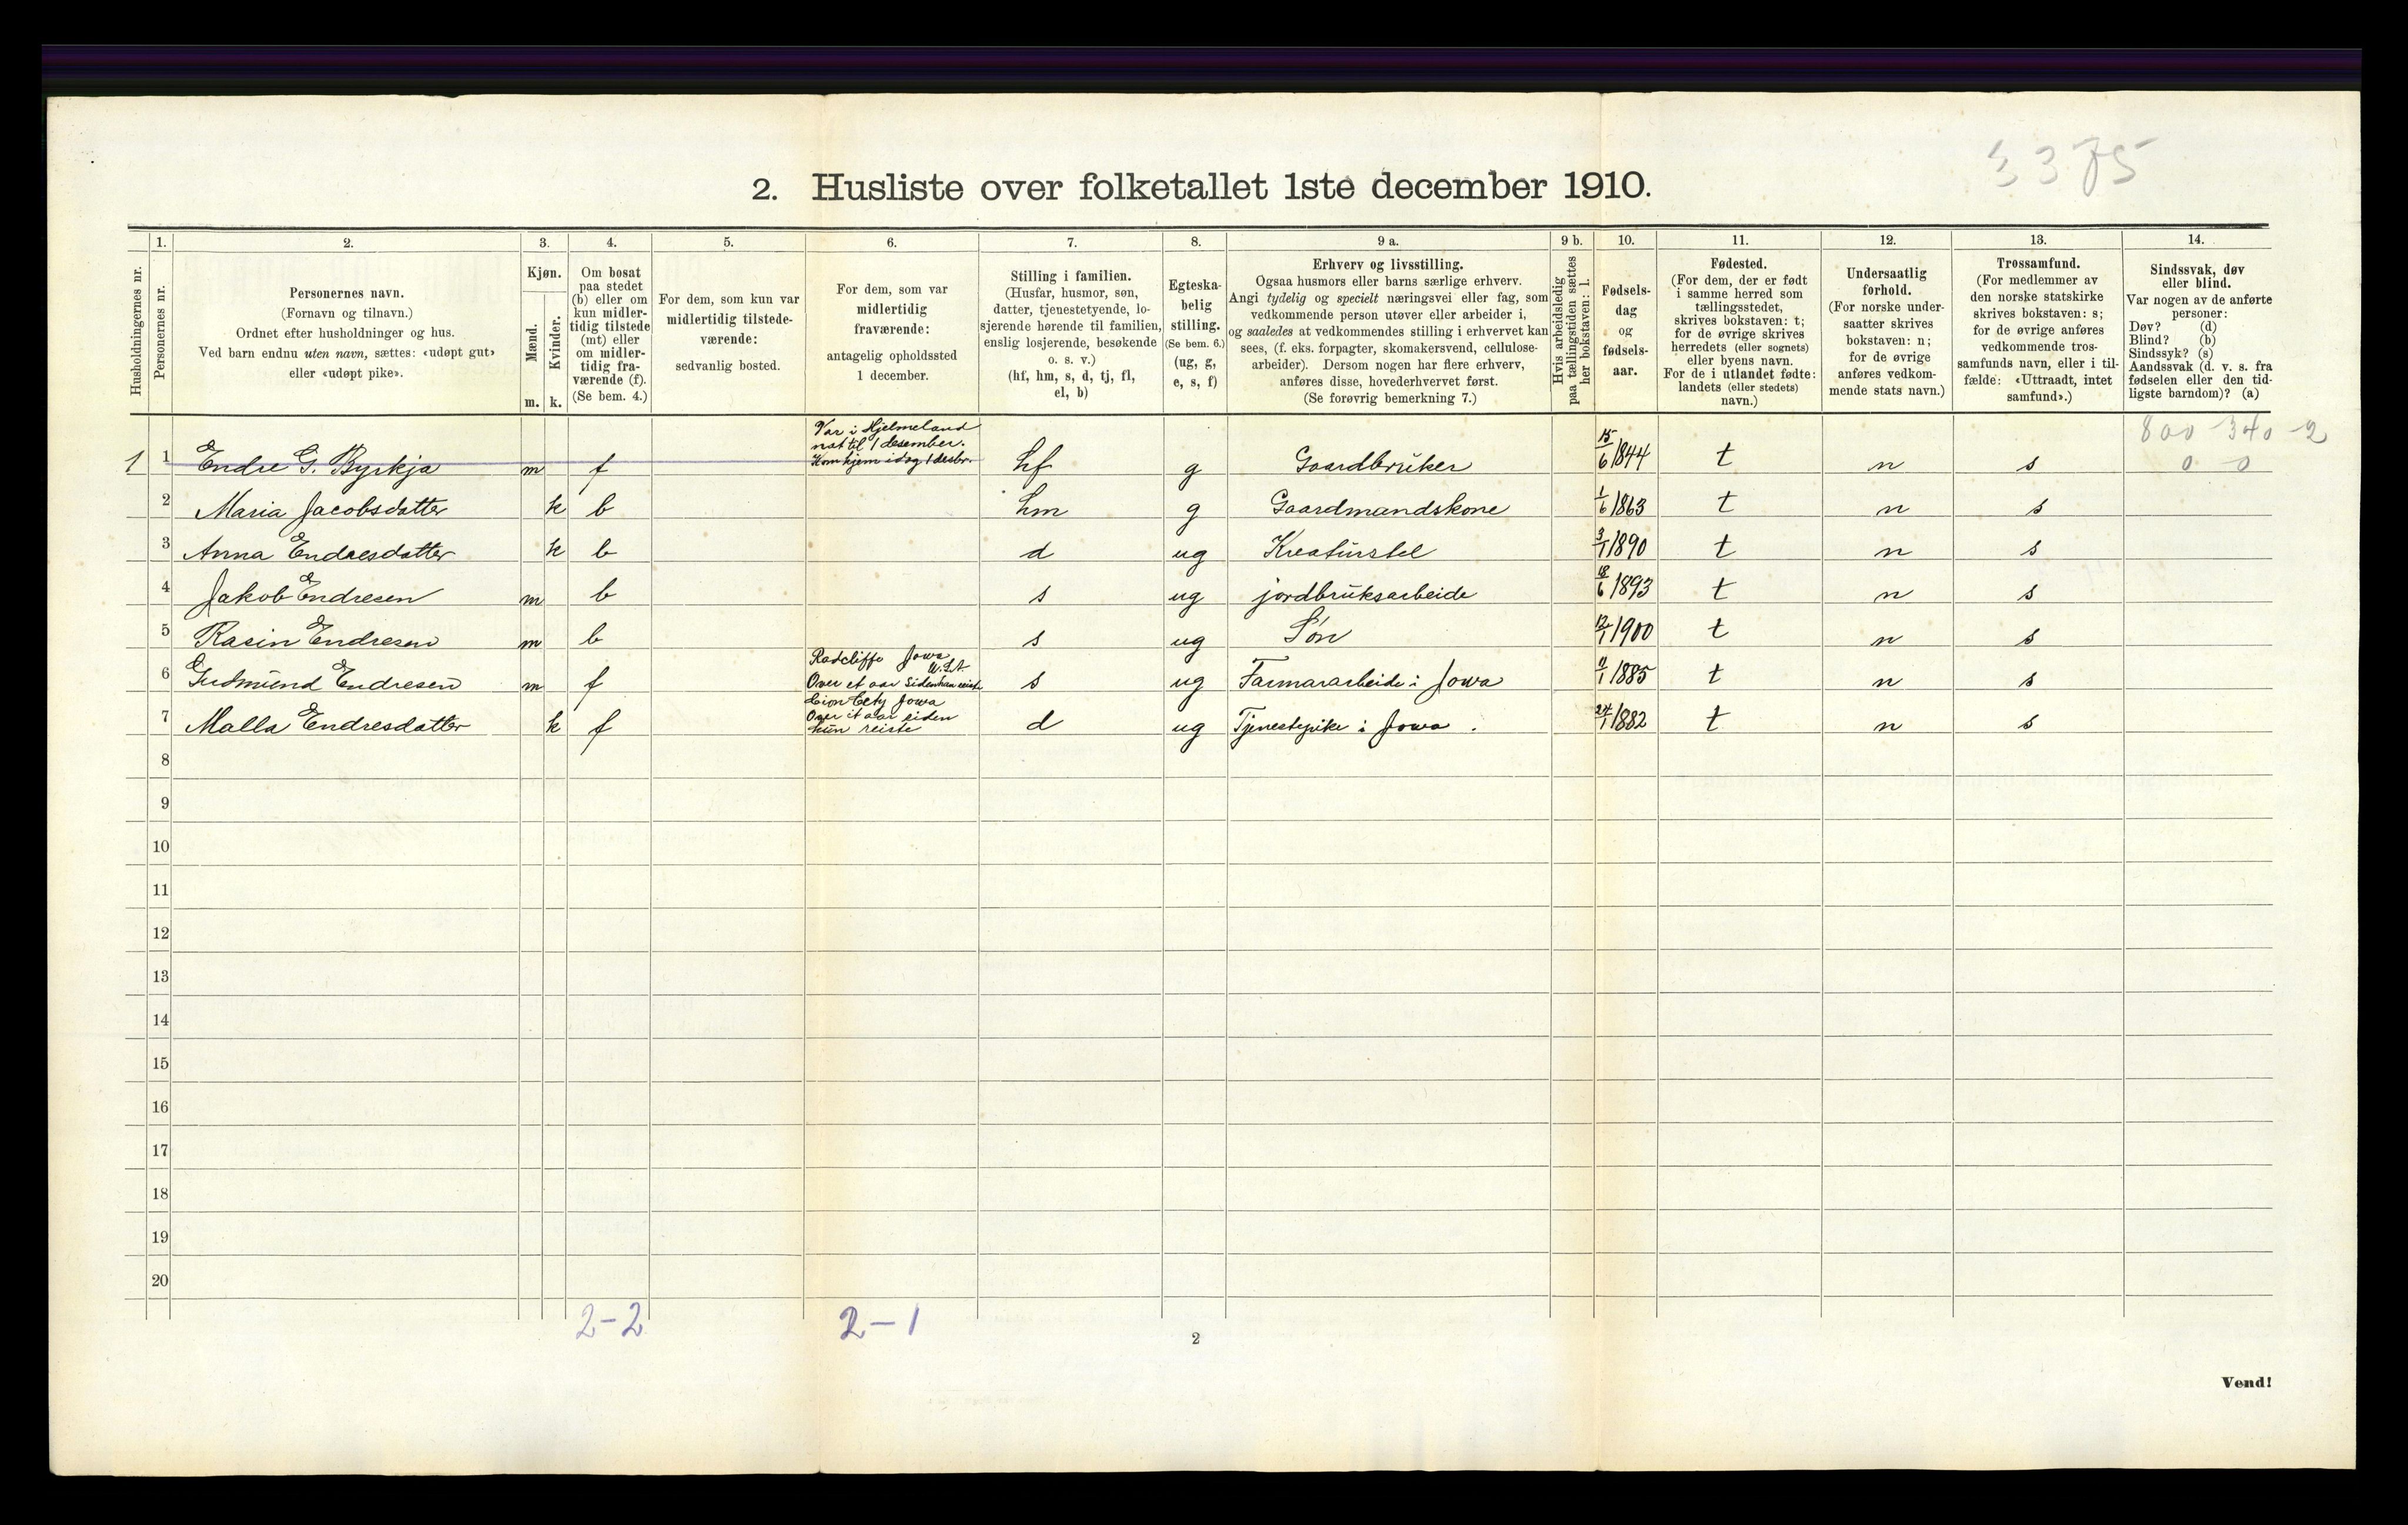 3375
2. Husliste over folketallet 1ste december 1910.
Husholdningernes nr.
1.
Personernes nr.
2.
Personernes navn.
(Fornavn og tilnavn.)
Ordnet efter husholdninger og hus.
Ved barn endnu uten navn, sættes: «udøpt gut»
eller «udøpt pike».
3.
Kjøn.
Mænd.
Kvinder.
m. k.
4.
Om bosat
paa stedet
(b) eller om
kun midler-
tidig tilstede
(mt) eller
om midler-
tidig fra-
værende (f).
(Se bem. 4.)
5.
For dem, som kun var
midlertidig tilstede-
værende:
sedvanlig bosted.
6.
For dem, som var
midlertidig
fraværende:
antagelig opholdssted
1 december.
7.
Stilling i familien.
(Husfar, husmor, søn,
datter, tjenestetyende, lo-
sjerende hørende til familien,
enslig losjerende, besøkende
o. s. v.)
(hf, hm, s, d, tj, fl,
el, b)
8.
Egteska-
belig
stilling.
(Se bem. 6.)
(ug, g,
e, s, f)
9 a.
Erhverv og livsstilling.
Ogsaa husmors eller barns særlige erhverv.
Angi tydelig og specielt næringsvei eller fag, som
vedkommende person utøver eller arbeider i,
og saaledes at vedkommendes stilling i erhvervet kan
sees, (f. eks. forpagter, skomakersvend, cellulose-
arbeider). Dersom nogen har flere erhverv,
anføres disse, hovederhvervet først.
(Se forøvrig bemerkning 7.)
9 b.
Hvis arbeidsledig
paa tællingstiden sættes
her bokstaven: l.
10.
Fødsels-
dag
og
fødsels-
aar.
11.
Fødested.
(For dem, der er født
i samme herred som
tællingsstedet,
skrives bokstaven: t;
for de øvrige skrives
herredets (eller sognets)
eller byens navn.
For de i utlandet fødte:
landets (eller stedets)
navn.)
12.
Undersaatlig
forhold.
(For norske under-
saatter skrives
bokstaven: n;
for de øvrige
anføres vedkom-
mende stats navn.)
13.
Trossamfund.
(For medlemmer av
den norske statskirke
skrives bokstaven: s;
for de øvrige anføres
vedkommende tros-
samfunds navn, eller i til-
fælde: «Uttraadt, intet
samfund».)
14.
Sindssvak, døv
eller blind.
Var nogen av de anførte
personer:
Døv? (d)
Blind? (b)
Sindssyk? (s)
Aandssvak (d. v. s. fra
fødselen eller den tid-
ligste barndom)? (a)
800 340 -2
0 0
1 1 Endre G. Byrkja m f Var i Hjelmeland
nat til 1 desember.
Kom hjem idag 1 desbr. hf g Gaardbruker 15/6 1844 t n s
2 Maria Jacobsdatter k b hm g Gaardmandskone 1/6 1863 t n s
3 Anna Endresdatter k b d ug Kreaturstel 3/1 1890 t n s
4 Jakob Endresen m b s ug jordbruksarbeide 18/6 1893 t n s
5 Rasin Endresen m b s ug Søn 12/1 1900 t n s
6 Gudmund Endresen m f Radcliffe Jowa
U.S.A.
Over et aar siden han reiste s ug Farmararbeide i Jowa 11/1 1885 t n s
7 Malla Endresdatter k f Cion City Jowa
Over it aar siden
hun reiste d ug Tjenestepike i Jowa. 24/1 1882 t n s
8
9
10
11
12
13
14
15
16
17
18
19
20
2-2
2-1
2
Vend!